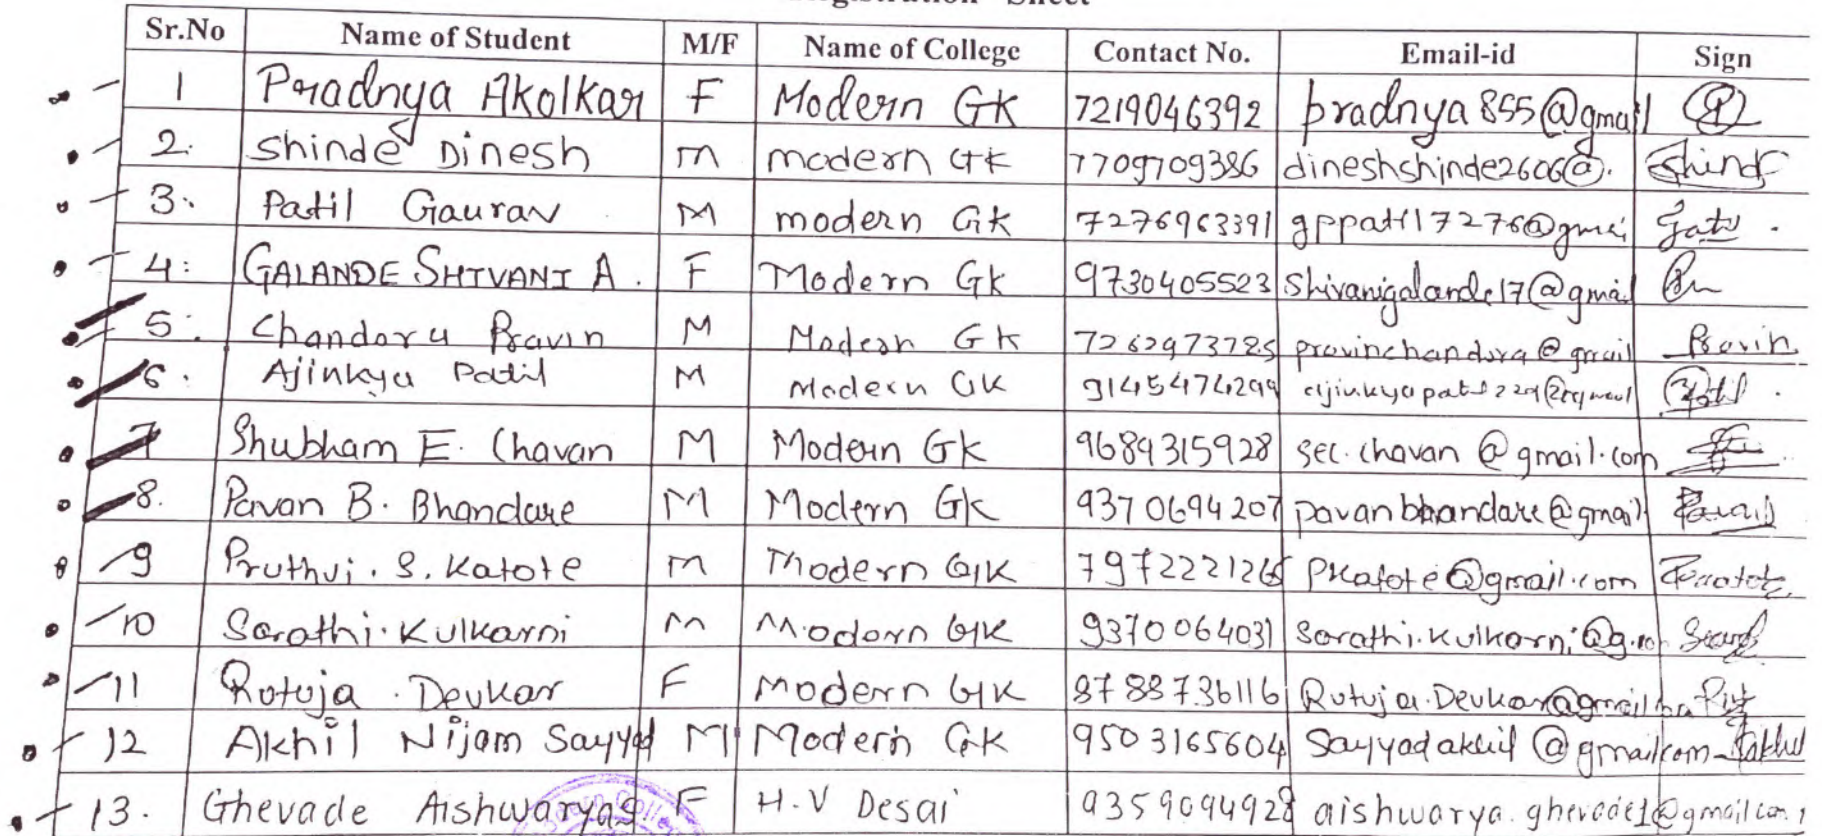 Registration Sheet
Sr.No Name of Student M/F Name of College Contact No. Email-id Sign
1 Pradnya Akolkar F Modern GK 7219046392 pradnya855@gmail
2. Shinde Dinesh M modern GK 7709709386 dineshshinde2606@. Shind
3. Patil Gaurav M modern GK 7276963391 gppatil7276@gmai
4: GALANDE SHIVANI A. F Modern GK 9730405523 Shivanigalande17@gmai
5. Chandoru Pravin M Modern GK 7262973785 pravinchandora@gmail Pravin
6. Ajinkya Patil M Modern GK 9145474299 Patil
7 Shubham E. Chavan M Modern GK 9689315928 sec.chavan@gmail.com
8. Pavan B. Bhandare M Modern GK 9370694207 pavanbhandare@gmail Pavan
9 Pruthvi. S. Katote M Modern GK 797222126 PKatote@gmail.com
10 Sarathi. Kulkarni M Modern GK 9370064031 Sarathi.Kulkarni@g.co
11 Rutuja . Devkar F Modern GK 8788736116 Rutuja.Devkar@gmail
12 Akhil Nijam Sayyad M Modern GK 9503165604 Sayyadakhil@gmailcom Akhil
13. Ghevade Aishwarya S F H.V Desai 9359094928 aishwarya.ghevade1@gmail.com